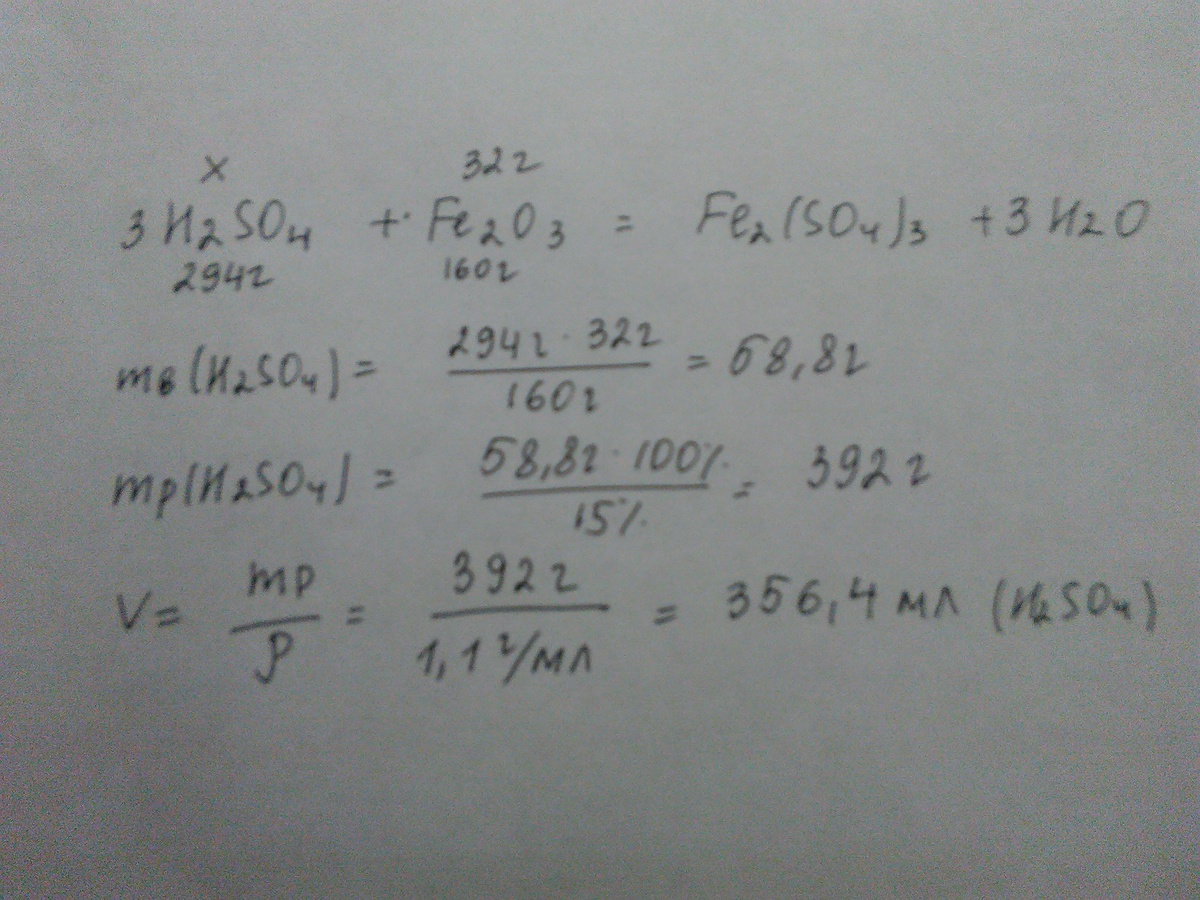 x 32г
3 H₂SO₄ + Fe₂O₃ = Fe₂(SO₄)₃ + 3 H₂O
294г 160г
mв(H₂SO₄) = 294г · 32г / 160г = 58,8г
mр(H₂SO₄) = 58,8г · 100% / 15% = 392г
V = mр / ρ = 392г / 1,1 г/мл = 356,4 мл (H₂SO₄)